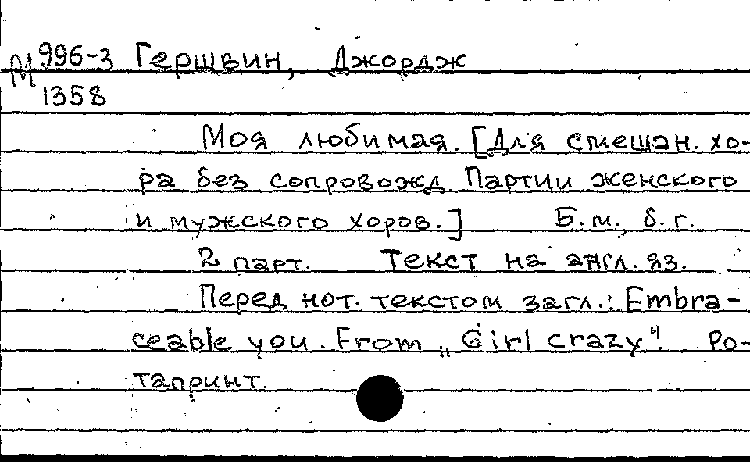 М 996-3 Гершвин, Джордж
1358
Моя любимая. [Для смешан. хо-
ра без сопровожд. Партии женского
и мужского хоров.] Б.м., б.г.
2 парт. Текст на англ. яз.
Перед нот. текстом загл.: Embra-
ceable you. From „Girl crazy". Ро-
тапринт.